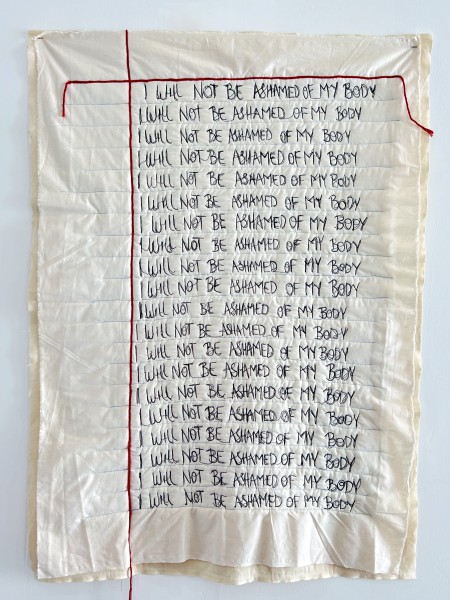 I WIll NOT BE ASHAMED OF MY BODY
I WIll NOT BE ASHAMED OF MY BODY
I WIll NOT BE ASHAMED OF MY BODY
I WIll NOT BE ASHAMED OF MY BODY
I WIll NOT BE ASHAMED OF MY BODY
I WIll NOT BE ASHAMED OF MY BODY
I WIll NOT BE ASHAMED OF MY BODY
I WIll NOT BE ASHAMED OF MY BODY
I WIll NOT BE ASHAMED OF MY BODY
I WIll NOT BE ASHAMED OF MY BODY
I WIll NOT BE ASHAMED OF MY BODY
I WIll NOT BE ASHAMED OF MY BODY
I WIll NOT BE ASHAMED OF MY BODY
I WIll NOT BE ASHAMED OF MY BODY
I WIll NOT BE ASHAMED OF MY BODY
I WIll NOT BE ASHAMED OF MY BODY
I WIll NOT BE ASHAMED OF MY BODY
I WIll NOT BE ASHAMED OF MY BODY
I WIll NOT BE ASHAMED OF MY BODY
I WIll NOT BE ASHAMED OF MY BODY